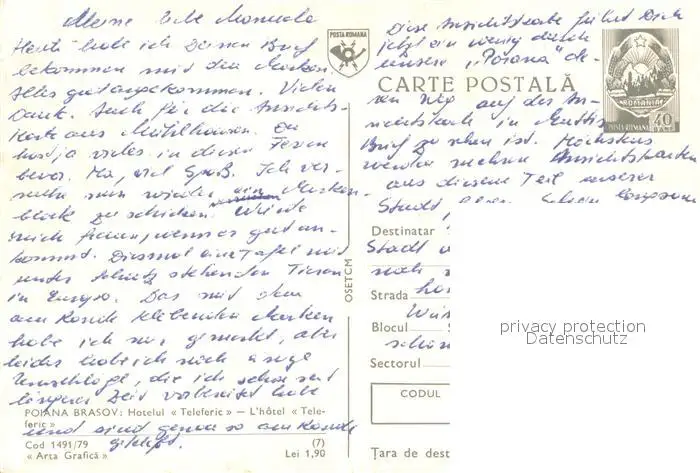 Meine liebe Manuela
Heute habe ich Deinen Brief
bekommen mit den Marken.
Alles gut angekommen. Vielen
Dank. Auch für die Ansichts-
karte aus Mühlhausen. Du
hast ja vieles in diesen Ferien
bevor. Na, viel Spaß. Ich ver-
suche nun wieder ein Marken-
block zu schicken. Würde
mich freuen, wenn er gut an-
kommt. Diesmal eine Tafel mit
unter Schutz stehenden Tieren
in Europa. Das mit dem
am Rande klebenden Marken
habe ich mir gemerkt, aber
leider habe ich noch einige
Umschläge, die ich schon seit
längerer Zeit vorbereitet habe
und sind genau so am Rande
geklebt.
POIANA BRASOV: Hotelul « Teleferic » — L'hôtel « Tele-
feric »
Cod 1491/79 (7)
« Arta Grafică » Lei 1,90
OSETCM
POSTA ROMANA
Diese Ansichtskarte führt Dich
jetzt ein wenig durch
unsere „Poiana"
CARTE POSTALĂ
ROMANIA
POSTA ROMANA 40
auf der An-
sichtskarte in Muttis
Brief zu sehen ist. Höchstens
werden mehrere Ansichtskarten
aus diesem Teil unserer
Stadt
Destinatar
Stadt
noch
Strada
Blocul
schön
Sectorul
CODUL
Țara de dest
privacy protection
Datenschutz